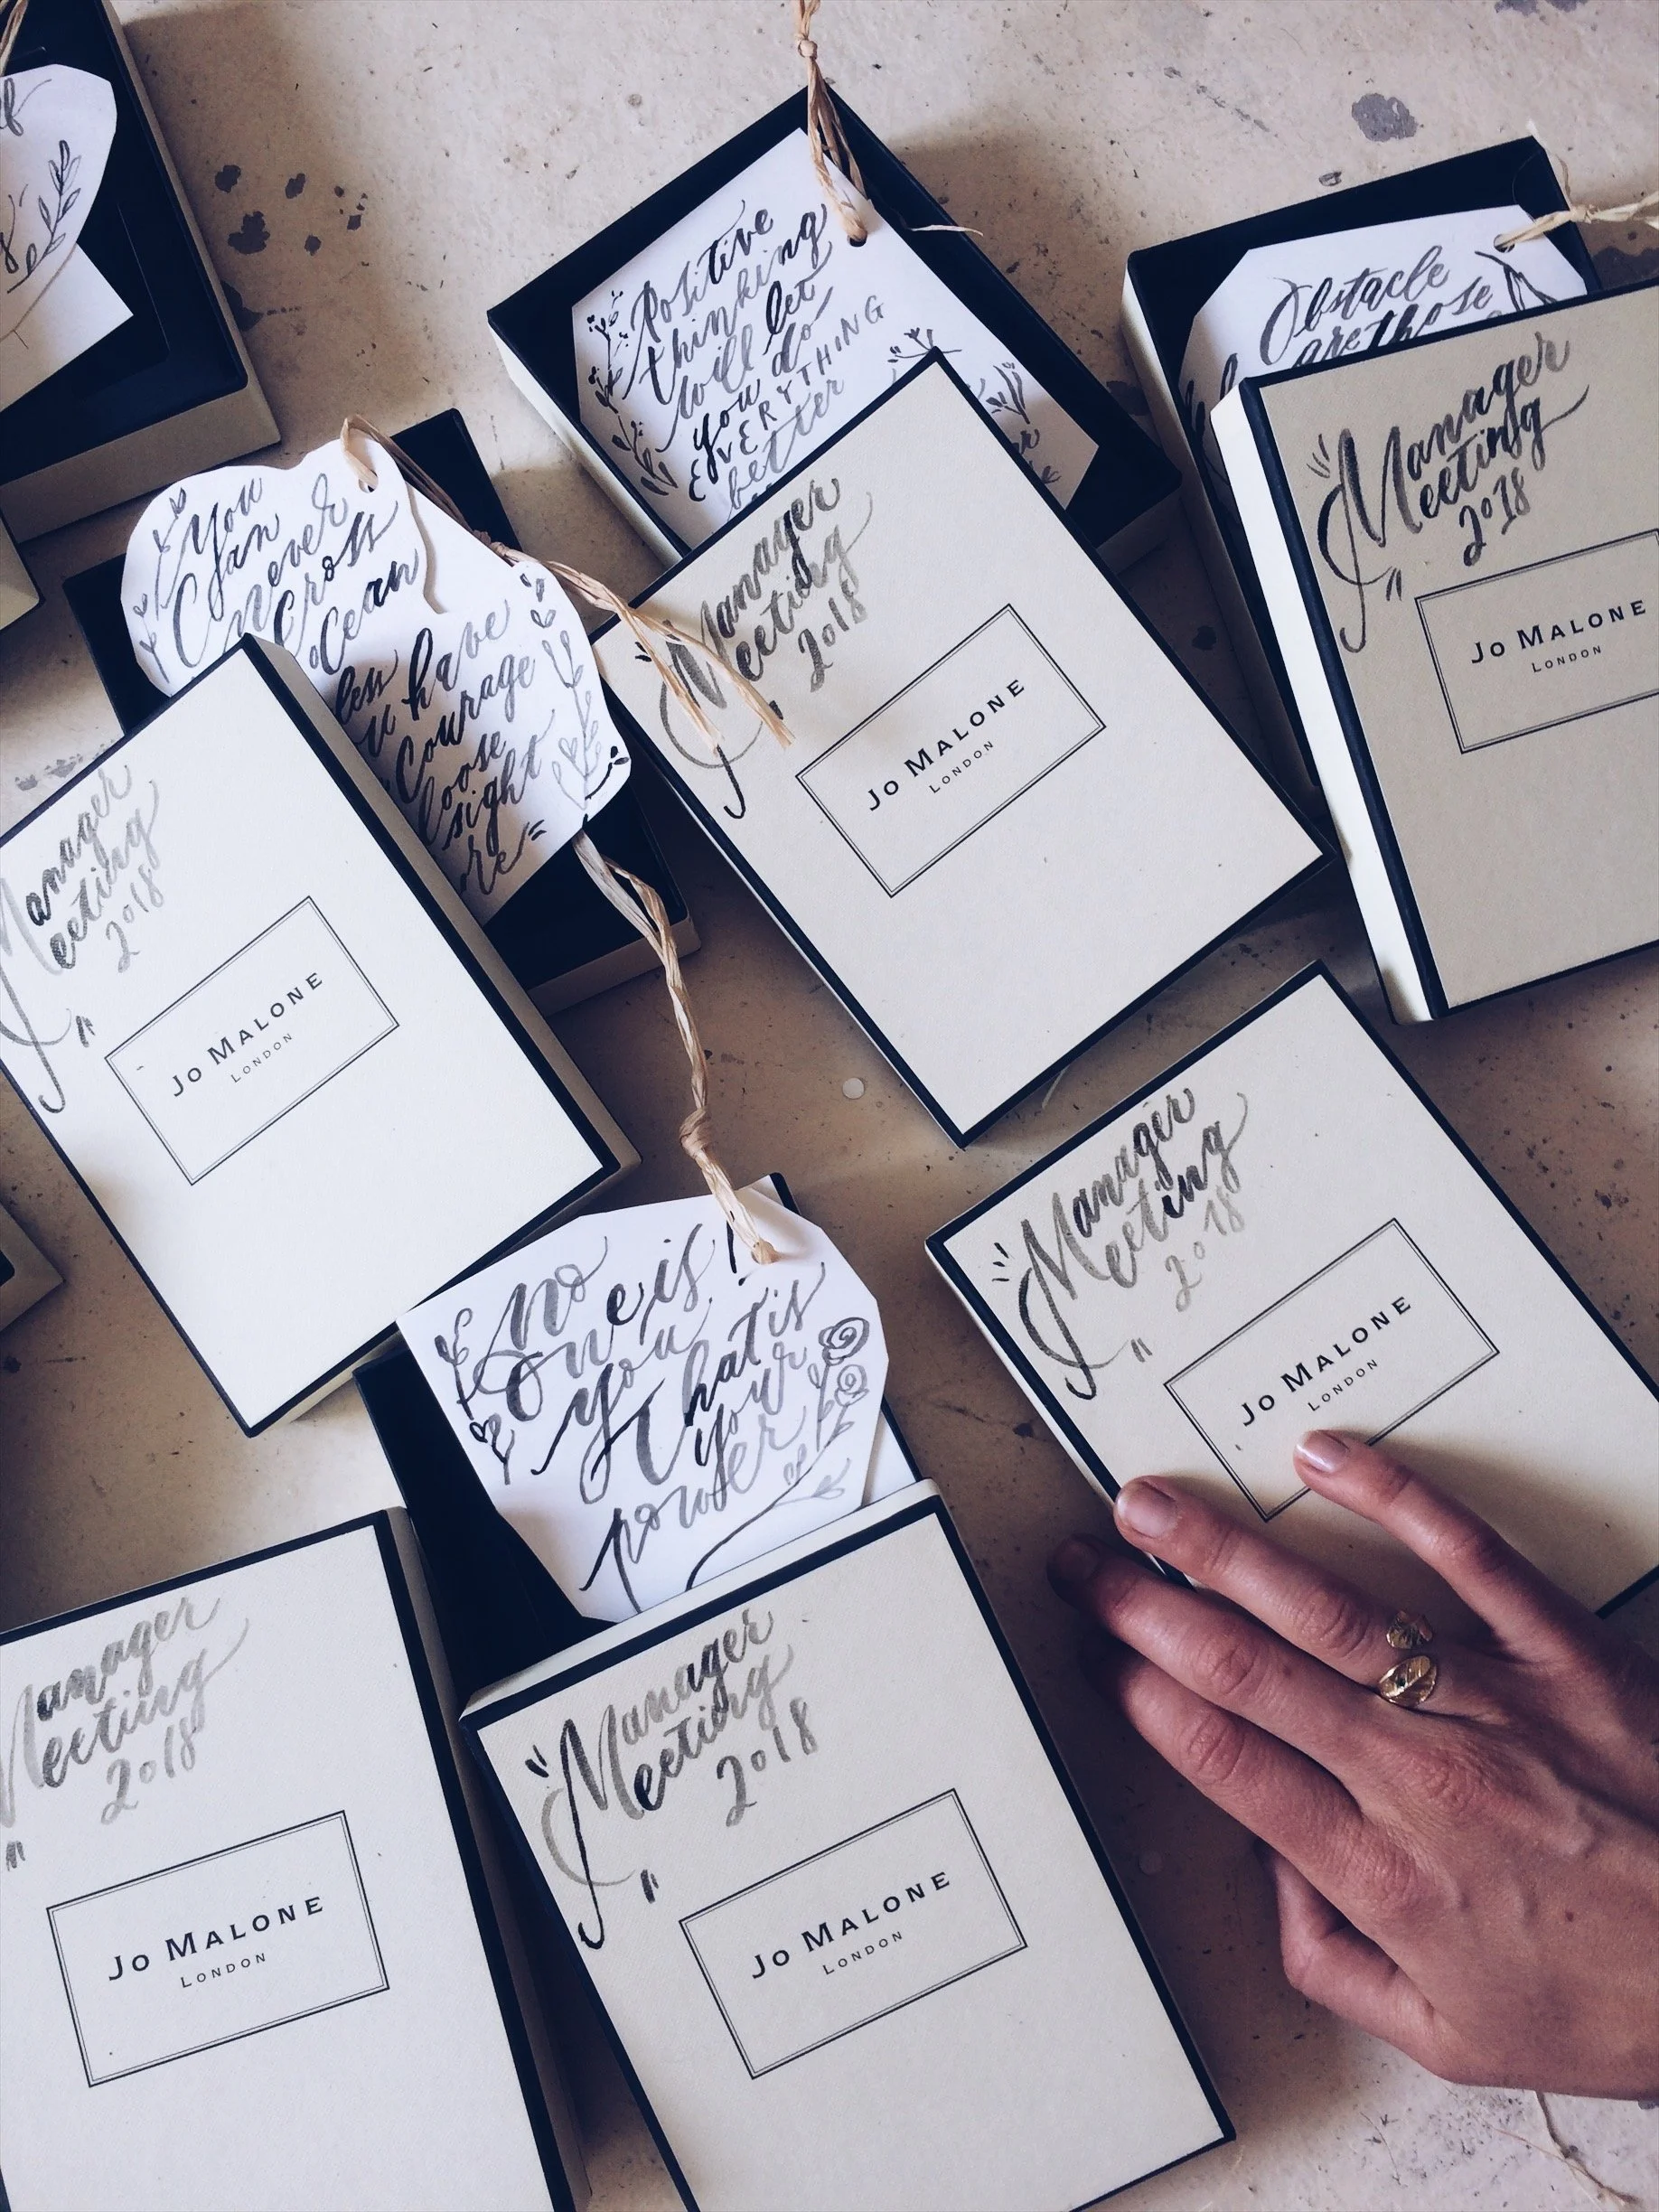 Positive
thinking
will let
you do
EVERYTHING
better
Obstacle
are those
Manager
Meeting
2018
JO MALONE
LONDON
You
Can
never
Cross
Ocean
less
u have
Courage
loose
sight
re
Manager
Meeting
2018
JO MALONE
LONDON
Manager
Meeting
2018
JO MALONE
LONDON
No
One is
You!
That is
your
power
Manager
Meeting
2018
JO MALONE
LONDON
Manager
Meeting
2018
JO MALONE
LONDON
Manager
Meeting
2018
JO MALONE
LONDON